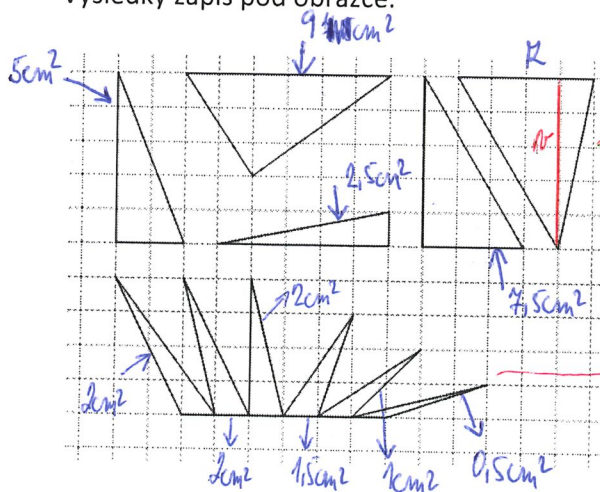 výsledky zapiš pod obrázce.
9 cm²
z
5cm²
v
2,5cm²
7,5cm²
2cm²
2cm²
2cm²
1,5cm²
1cm²
0,5cm²